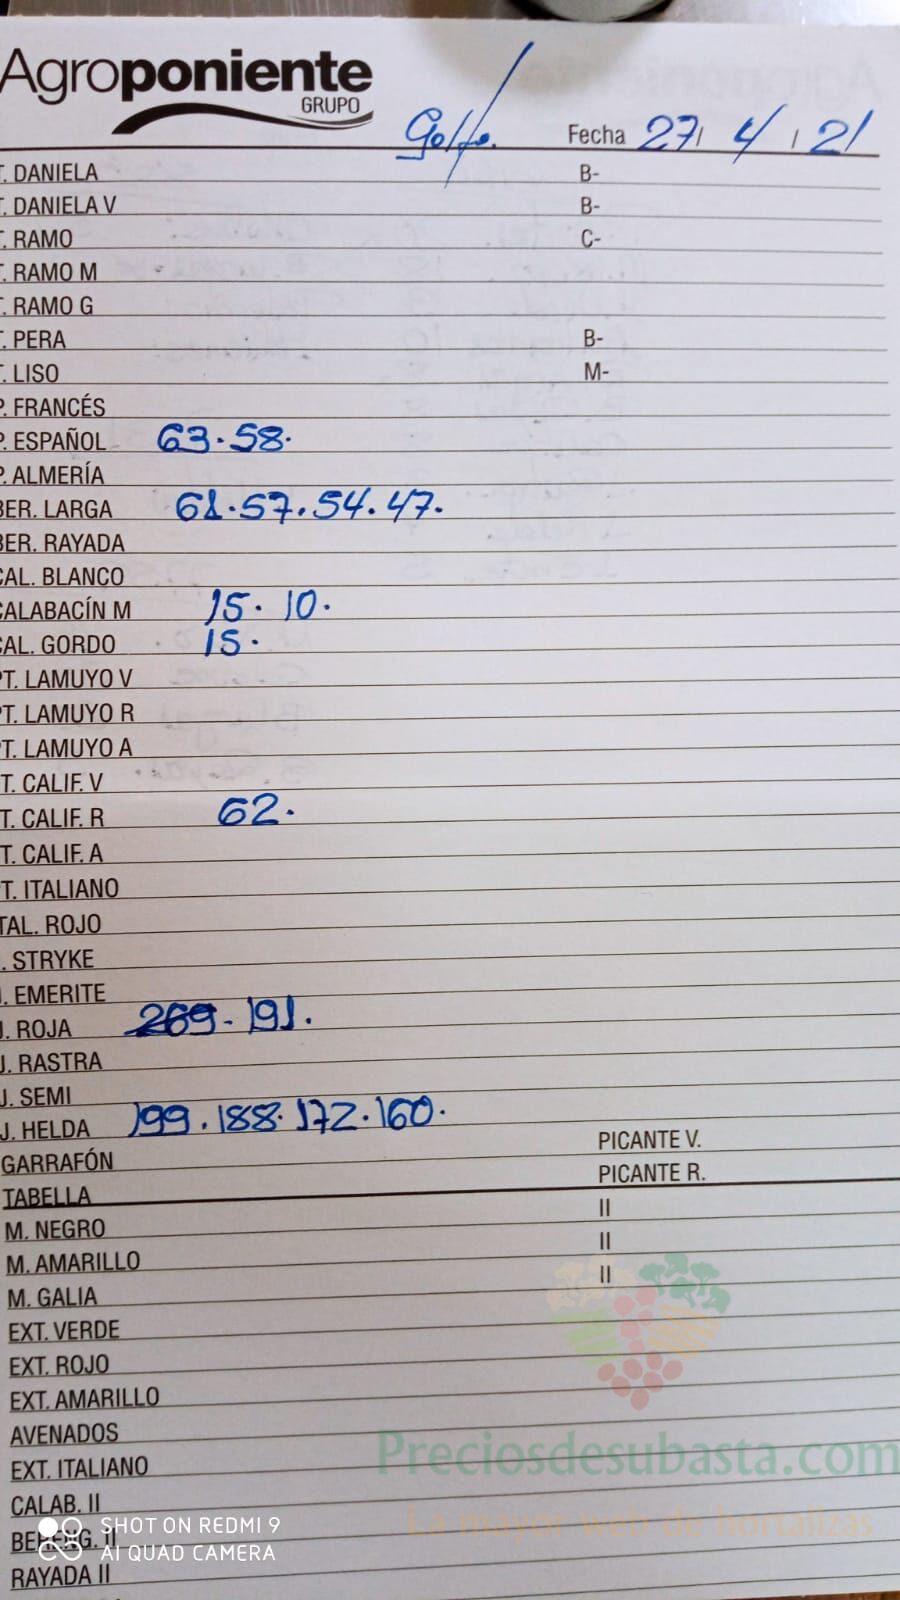 Agroponiente
GRUPO
Golfo. Fecha 27/ 4 / 21
T. DANIELA B-
T. DANIELA V B-
T. RAMO C-
T. RAMO M
T. RAMO G
T. PERA B-
T. LISO M-
P. FRANCÉS
P. ESPAÑOL 63.58.
P. ALMERÍA
BER. LARGA 61.57.54.47.
BER. RAYADA
CAL. BLANCO
CALABACÍN M 15. 10.
CAL. GORDO 15.
PT. LAMUYO V
PT. LAMUYO R
PT. LAMUYO A
T. CALIF. V
T. CALIF. R 62.
T. CALIF. A
T. ITALIANO
TAL. ROJO
. STRYKE
J. EMERITE
J. ROJA 269. 191.
J. RASTRA
J. SEMI
J. HELDA 199.188.172.160.
GARRAFÓN PICANTE V.
TABELLA PICANTE R.
M. NEGRO II
M. AMARILLO II
M. GALIA II
EXT. VERDE
EXT. ROJO
EXT. AMARILLO
AVENADOS
EXT. ITALIANO
Preciosdesubasta.com
CALAB. II
La mayor web de hortalizas
BERENG. II
SHOT ON REDMI 9
AI QUAD CAMERA
RAYADA II